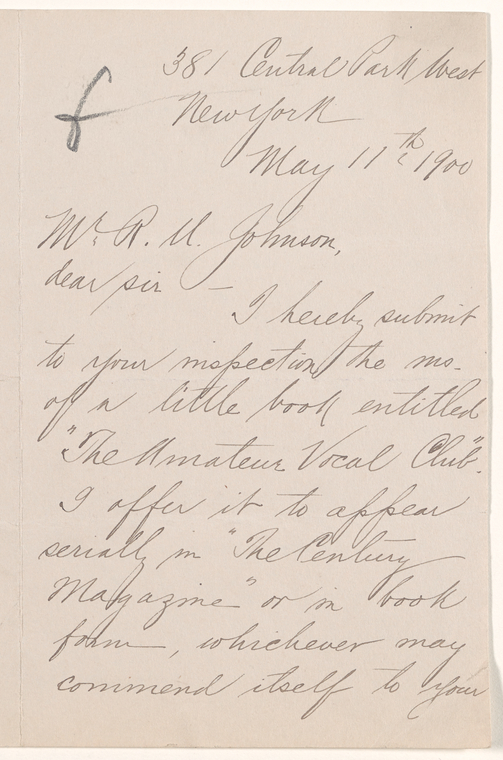 381 Central Park West
New York
May 11th 1900
Mr. R. U. Johnson,
dear sir –
I hereby submit
to your inspection the ms.
of a little book entitled
"The Amateur Vocal Club".
I offer it to appear
serially in "The Century
Magazine" or in book
form, whichever may
commend itself to your